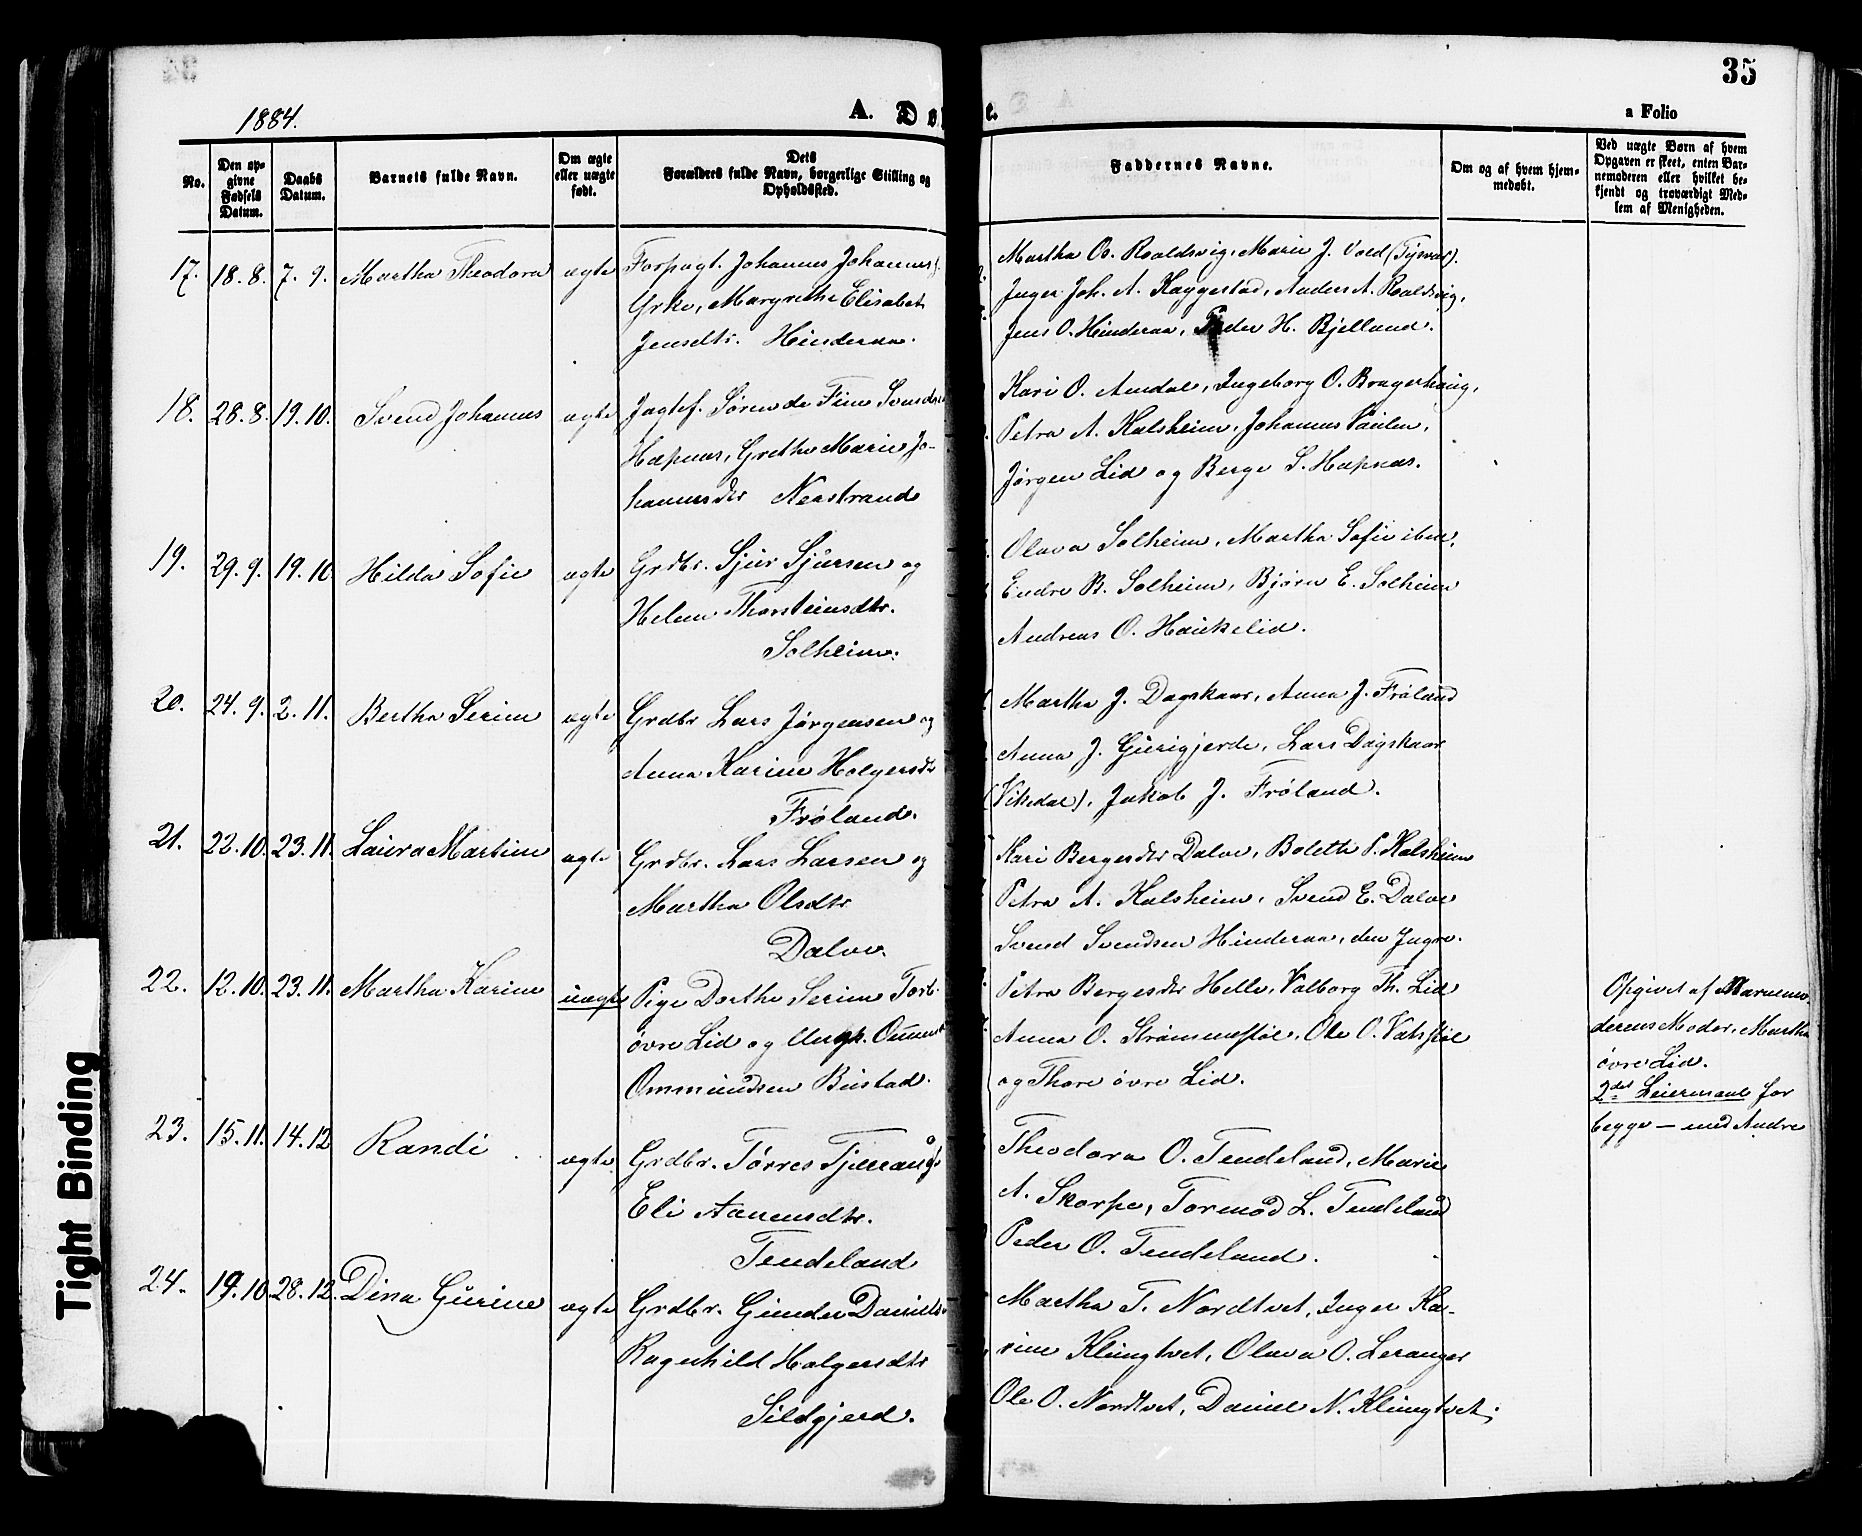 35
1884.
A. Døbte.
a Folio
No.
Den op-
givne
Fødsels
Datum.
Daabs
Datum.
Barnets fulde Navn.
Om ægte
eller uægte
født.
Dets
Forældres fulde Navn, borgerlige Stilling og
Opholdssted.
Faddernes Navne.
Om og af hvem hjem-
medøbt.
Ved uægte Børn af hvem
Opgaven er skeet, enten Bar-
nemoderen eller hvilket be-
kjendt og troværdigt Med-
lem af Menigheden.
17. 18.8. 7. 9. Martha Theodora ægte Forpagt. Johannes Johannes.
Yrke, Margrethe Elisabet
Jensdtr. Hinderaa.
Martha O. Roaldsvig, Marie J. Vold (Tysvær).
Inger Joh. A. Kaggestad, Anders A. Roaldsvig,
Jens O. Hinderaa, Peder H. Bjelland.
18. 28.8. 19.10. Svend Johannes ægte Jagtef. Sørende Finn Svends
Hapnes, Grethe Marie Jo-
hannesdtr Nerstrand
Kari O. Amdal, Ingeborg O. Bragerhaug,
Petra A. Halsheim, Johannes Vaulen,
Jørgen Lid og Berge S. Hapnes.
19. 29.9. 19.10 Hilda Sofie ægte Grdbr. Sjur Sjursen og
Helene Thorsteinsdtr.
Solheim.
Olava Solheim, Martha Sofie ibm,
Endre B. Solheim, Bjørn E. Solheim
Andreas O. Haukelid.
20. 24.9. 2.11. Bertha Serine ægte Grdbr Lars Jørgensen og
Anna Karine Holgersdtr
Frøland.
Martha J. Dagskaar, Anna J. Frøland
Anna J. Gurigjerde, Lars Dagskaar
(Vikedal), Jakob J. Frøland.
21. 22.10. 23.11. Laura Martine ægte Grdbr. Lars Larsen og
Martha Olsdtr
Dalve.
Kari Bergesdtr Dalve, Bolette P. Halsheim
Petra A. Halsheim, Svend E. Dalve
Svend Svendsen Hinderaa, den Yngre.
22. 12.10. 23.11. Martha Karine uægte Pige Dorthe Serine Torb.
øvre Lid og Ungk. Ommund
Ommundsen Bustad.
Petra Bergesdtr Helle, Valborg Th. Lid
Anna O. Strømmestøl, Ole O. Vatsstøl
og Thore øvre Lid.
Opgivet af Barnemo-
derens Moder, Martha
øvre Lid.
2det Leiermaal for
begge — med Andre
23. 15.11. 14.12 Randi ægte Grdbr. Tørres Tjeran
Eli Aanensdtr.
Tendeland
Theodora O. Tendeland, Marie
A. Skorpe, Tormod L. Tendeland
Peder O. Tendeland.
24. 19.10. 28.12. Dina Gurine ægte Grdbr. Gunder Daniels
Ragnhild Holgersdtr
Sildgjerd.
Martha T. Nordtvet, Inger Ka-
rine Klungtvet, Olava O. Leranger
Ole O. Nordtvet, Daniel N. Klungtvet.
Tight Binding